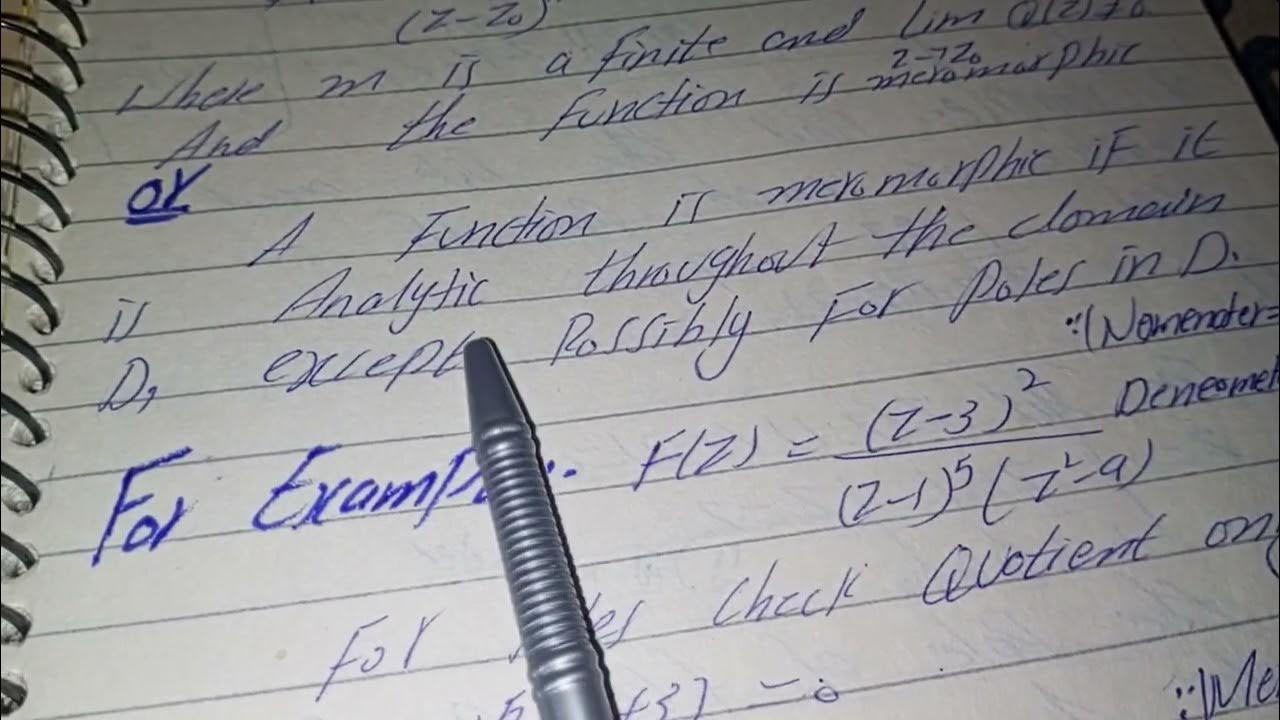 (z-z₀)
Where m is a finite and lim Q(z) ≠ 0
z→z₀
And the Function is meromorphic
or
A Function is meromorphic if it
is Analytic throughout the domain
D, except Possibly For Poles in D.
∵(Nomenater=
For Example:. F(z) = (z-3)² / (z-1)⁵(z²-9)
For check Quotient
+3) = 0